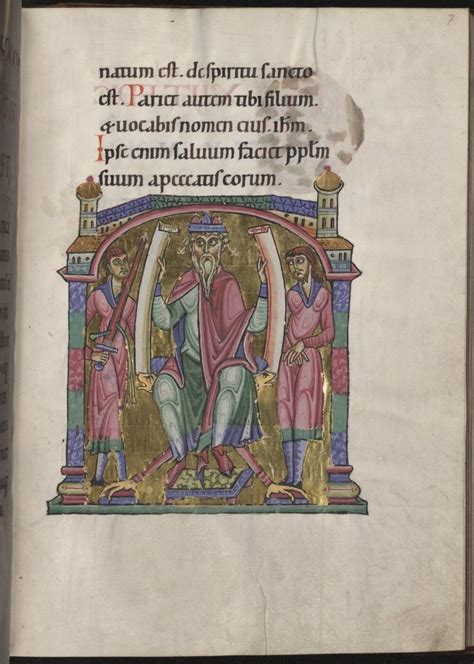 7
natum est. despiritu sancto
est. Pariet autem tibi filium.
& uocabis nomen eius. ihm.
Ipse enim saluum faciet pplm
suum apeccatis eorum.